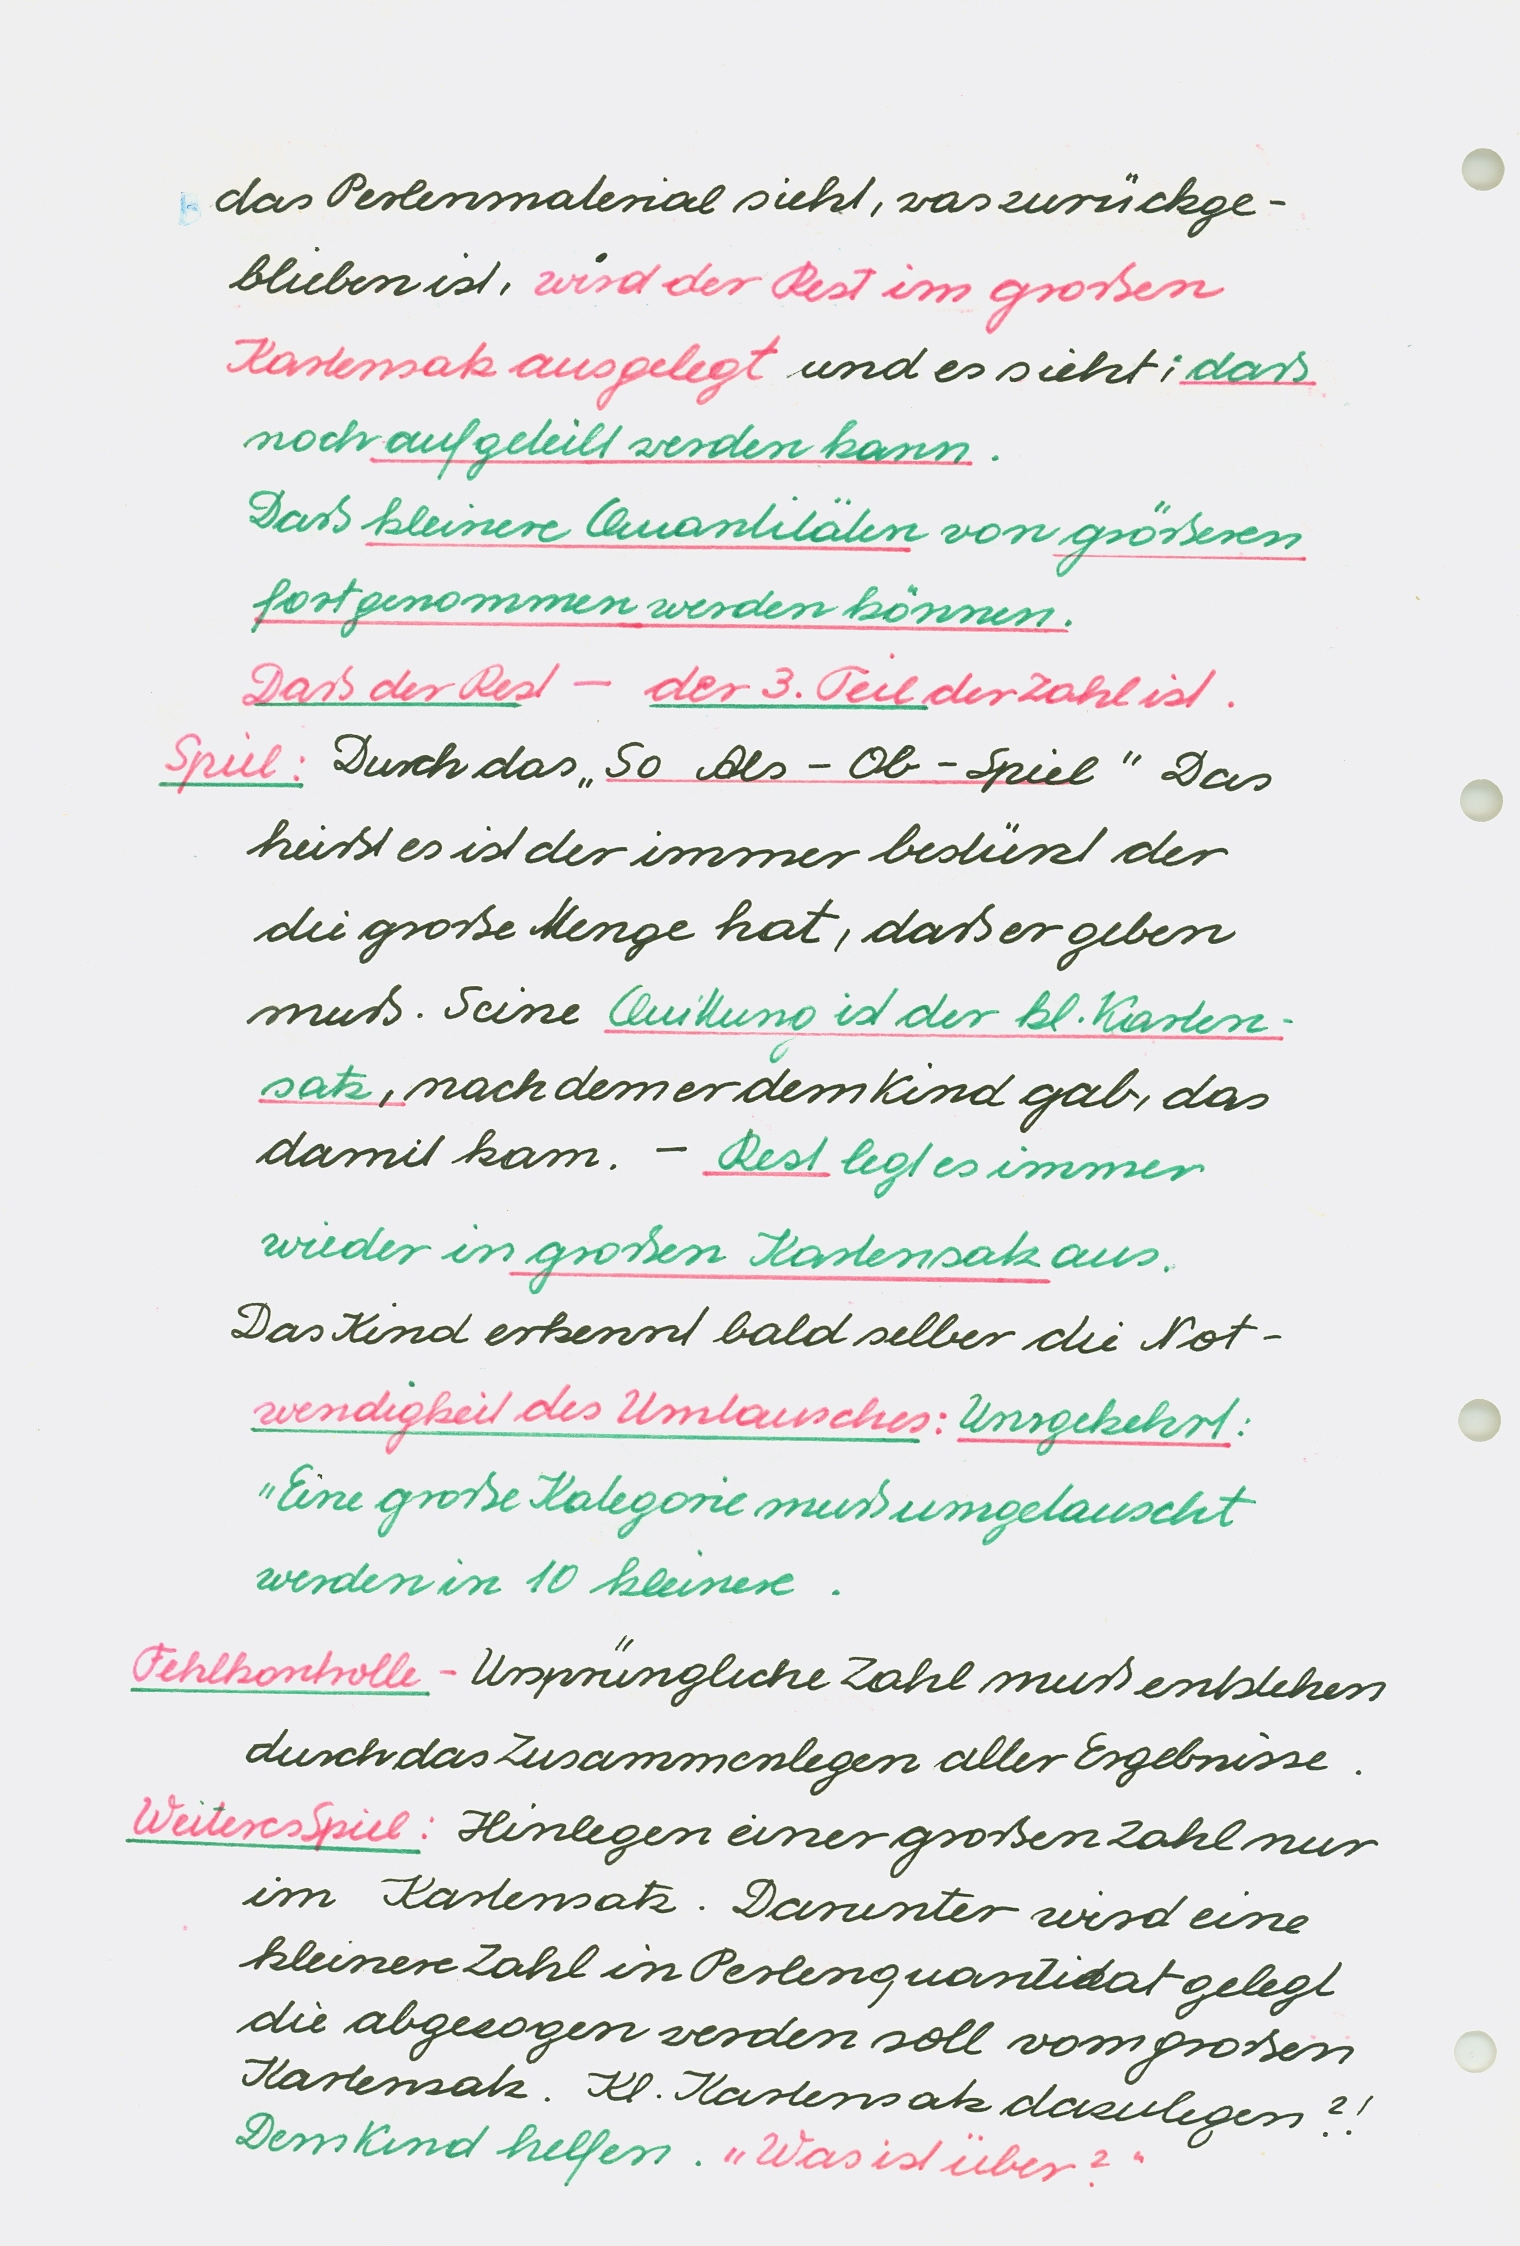 das Perlenmaterial sieht, was zurückge-
blieben ist, wird der Rest im großen
Kartensatz ausgelegt und es sieht; daß
noch aufgeteilt werden kann.
Daß kleinere Quantitäten von größeren
fortgenommen werden können.
Daß der Rest – der 3. Teil der Zahl ist.
Spiel: Durch das „So Als – Ob – Spiel" Das
heißt es ist der immer bestürzt der
die große Menge hat, daß er geben
muß. Seine Quittung ist der kl. Karten-
satz, nachdem er dem Kind gab, das
damit kam. – Rest legt es immer
wieder in großen Kartensatz aus.
Das Kind erkennt bald selber die Not-
wendigkeit des Umtausches: Umgekehrt:
"Eine große Kategorie muß umgetauscht
werden in 10 kleinere.
Fehlkontrolle – Ursprüngliche Zahl muß entstehen
durch das Zusammenlegen aller Ergebnisse.
Weiteres Spiel: Hinlegen einer großen Zahl nur
im Kartensatz. Darunter wird eine
kleinere Zahl in Perlenquantidat gelegt
die abgezogen werden soll vom großen
Kartensatz. Kl. Kartensatz dazulegen?!
Dem Kind helfen. „Was ist über?"